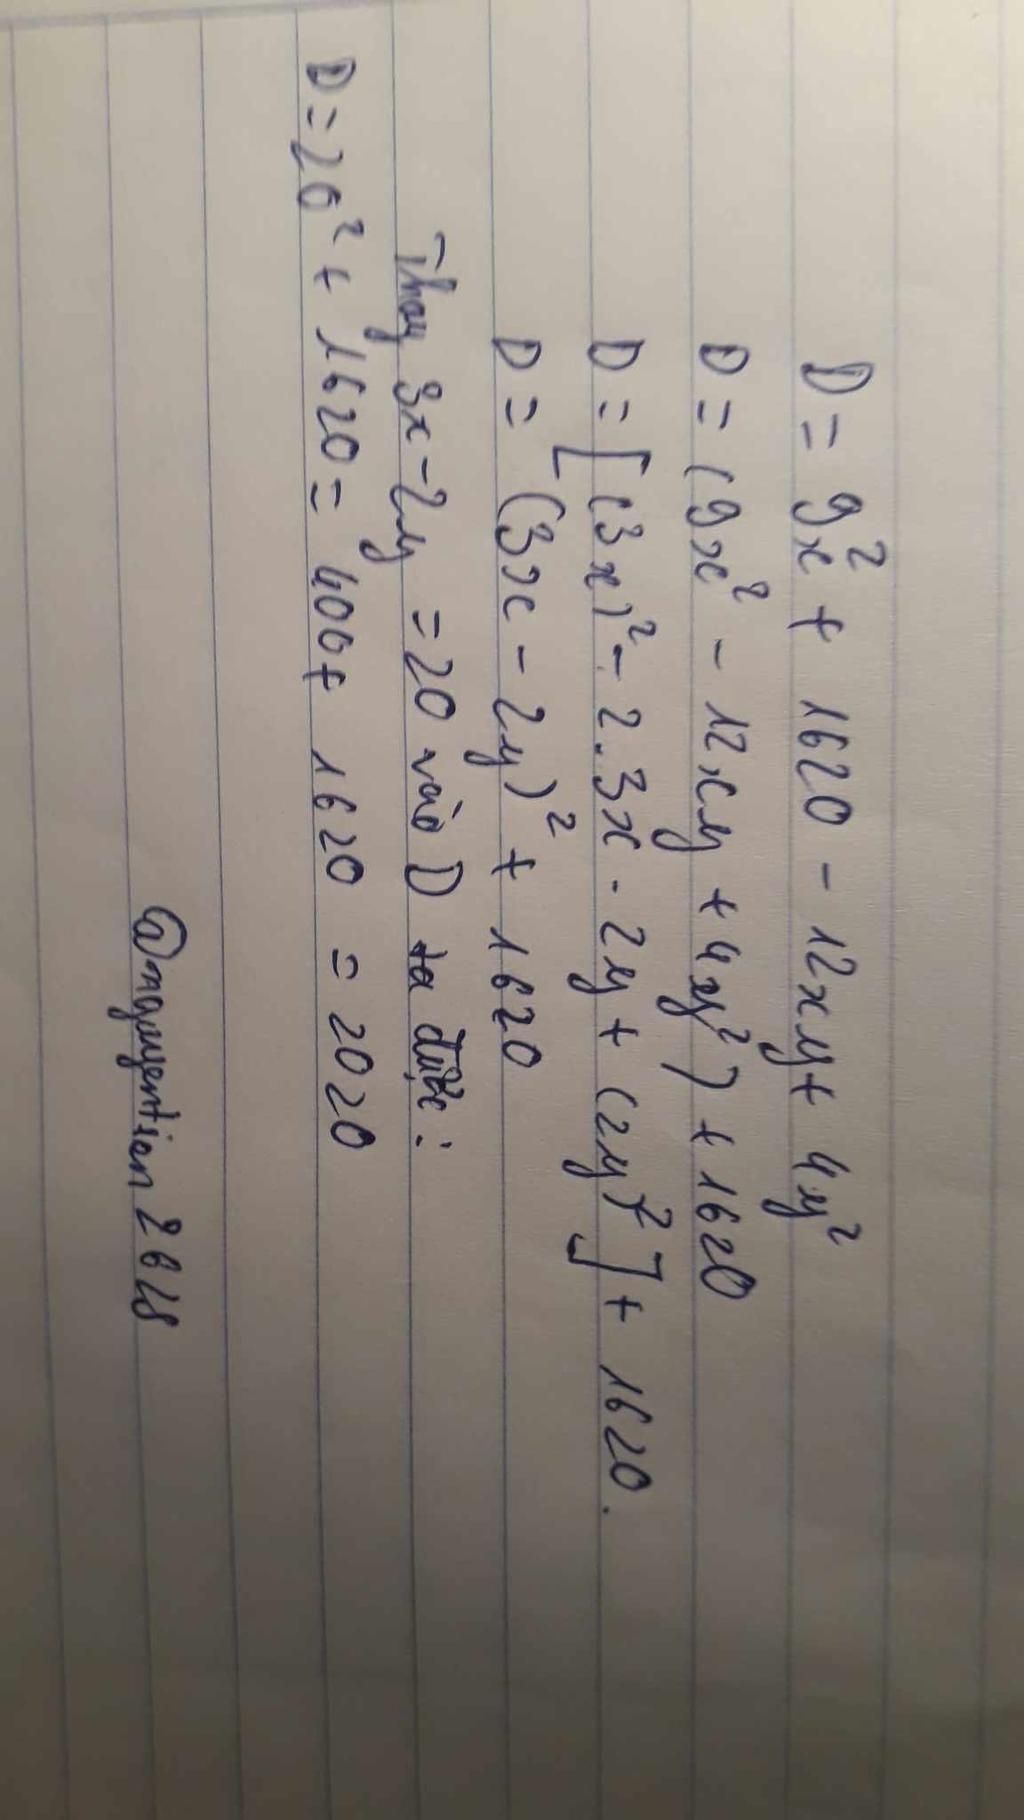 D = 9x² + 1620 - 12xy + 4y²
D = (9x² - 12xy + 4y²) + 1620
D = [(3x)² - 2.3x.2y + (2y)²] + 1620.
D = (3x - 2y)² + 1620
Thay 3x - 2y = 20 vào D ta được:
D = 20² + 1620 = 400 + 1620 = 2020